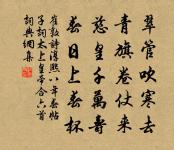 翠管吹寒去
青旗卷仗来
慈皇千萬壽
春日上春杯
崔敦詩淳熙八年春帖
子詞太上皇帝合六首
詞典網集